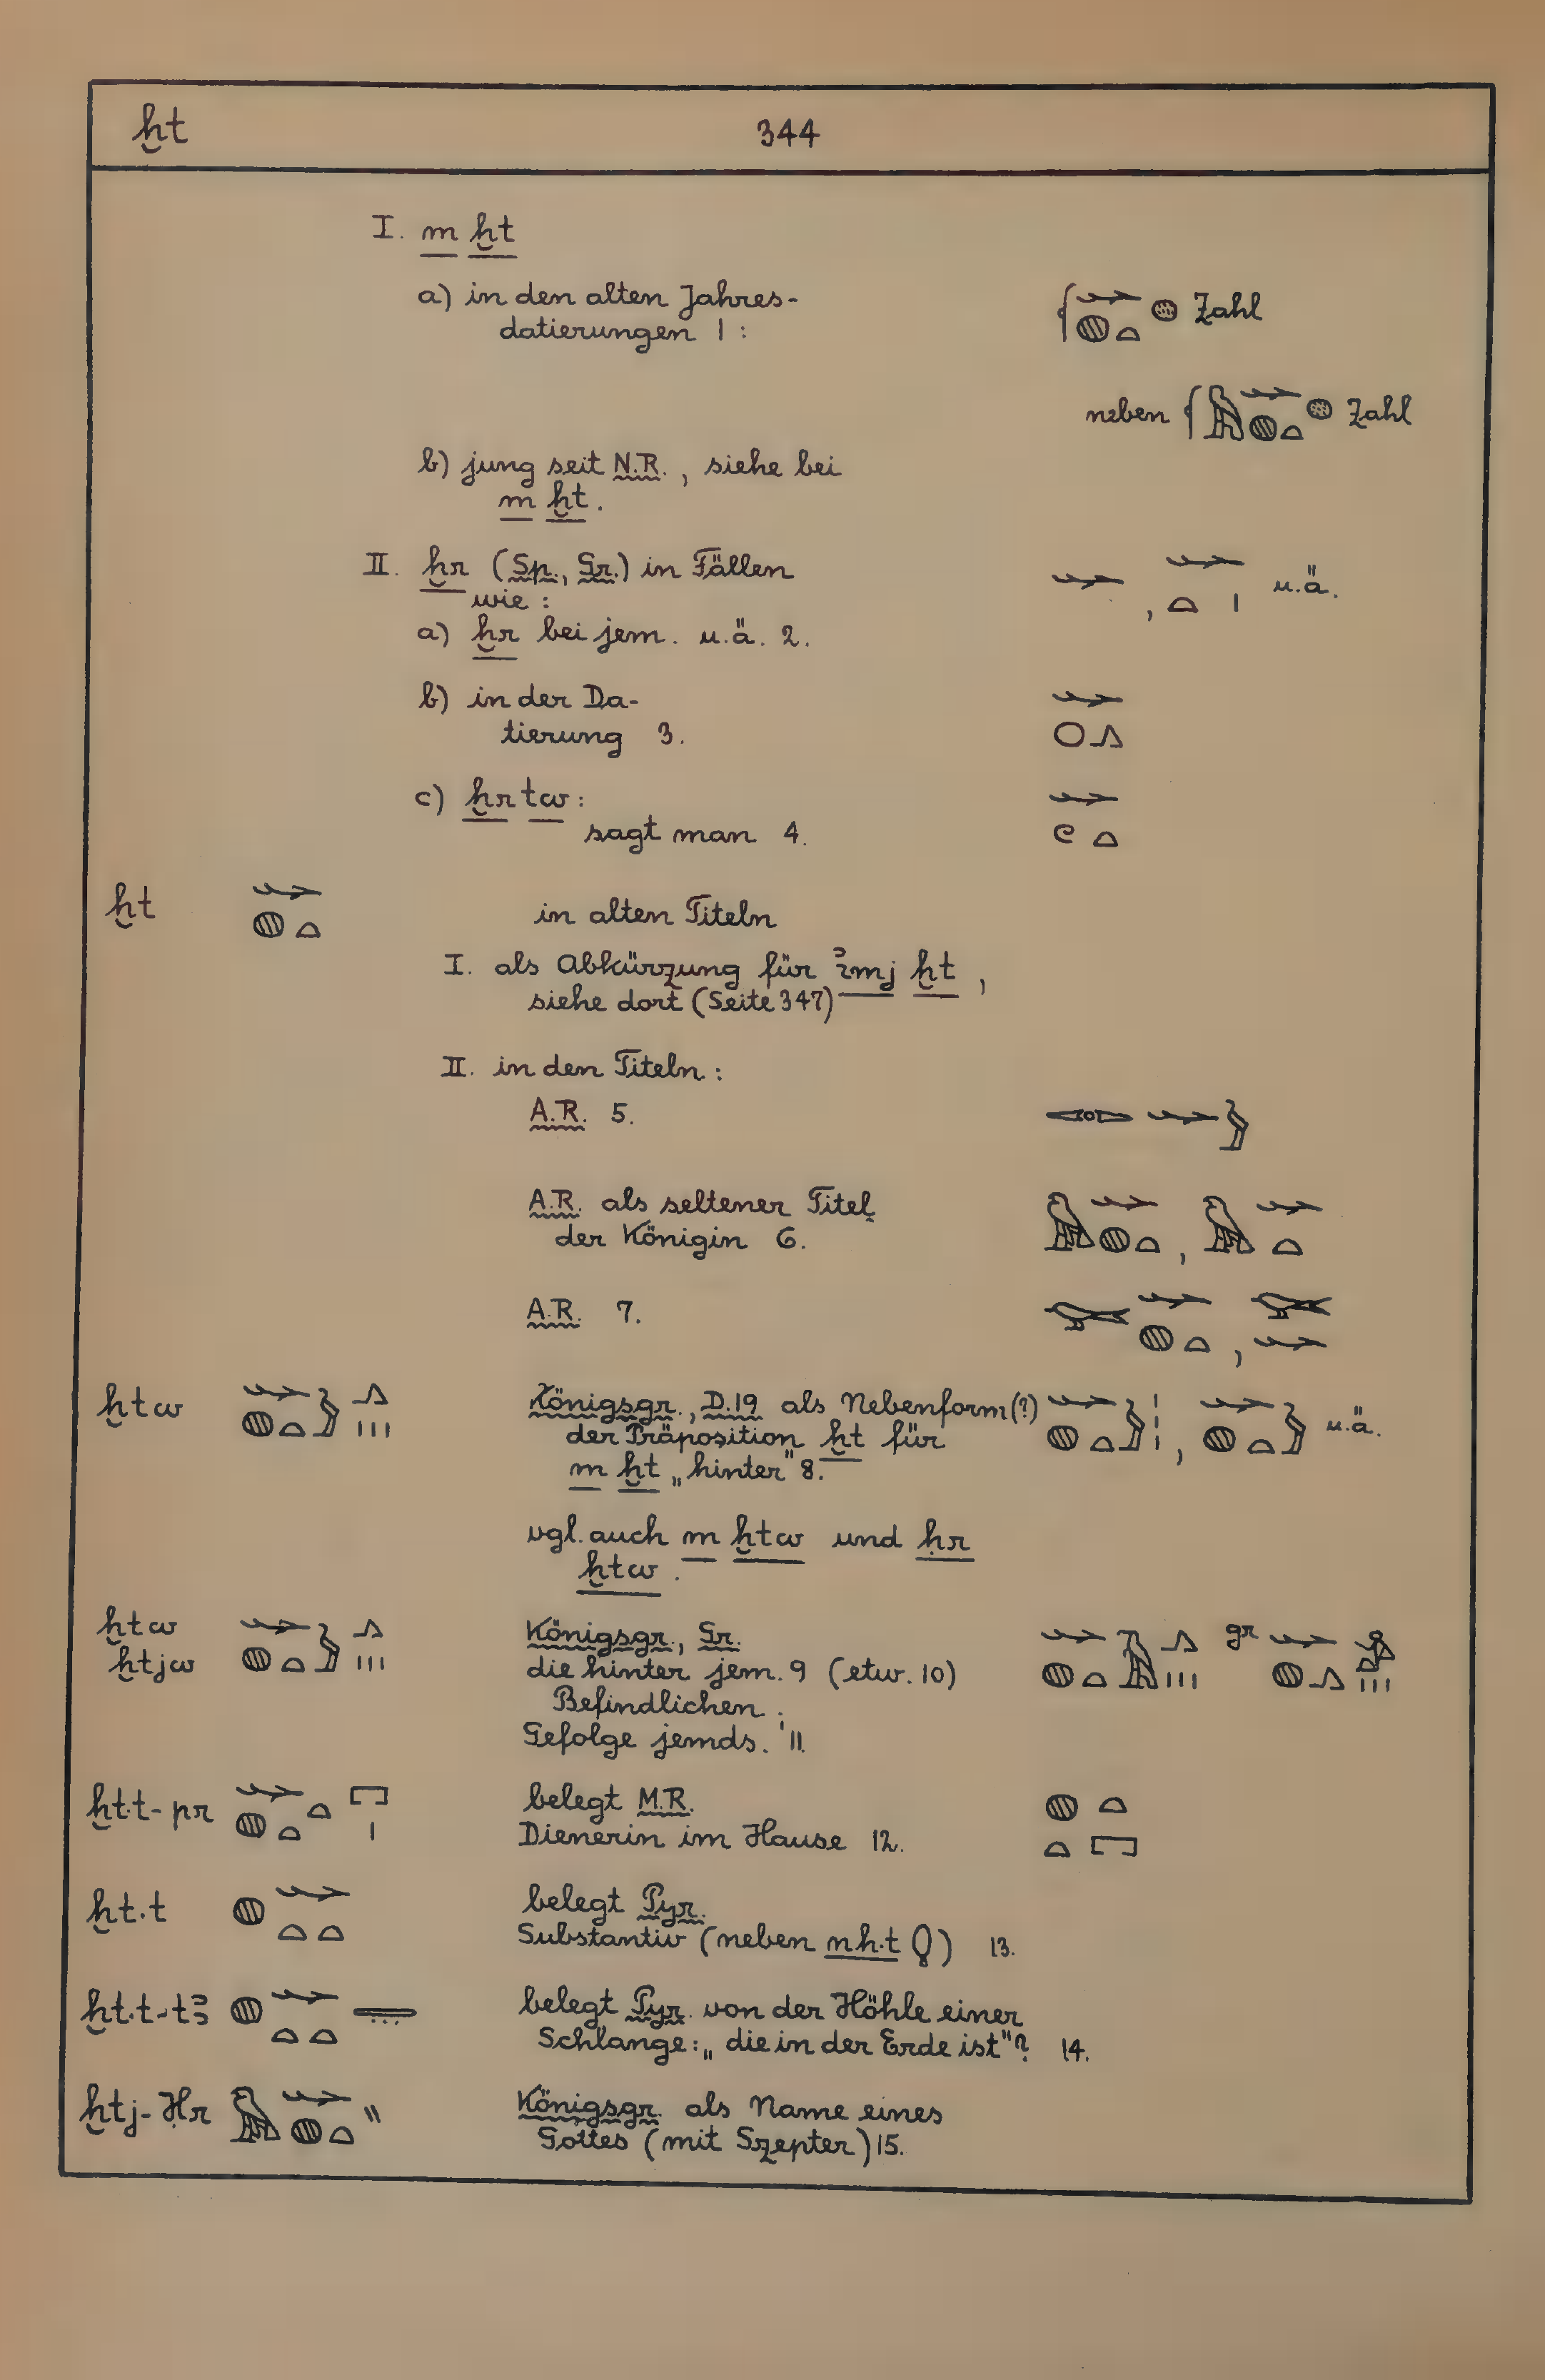 ḫt 344
I. m ḫt
a) in den alten Jahres-
datierungen 1 : Zahl
neben Zahl
b) jung seit N.R., siehe bei
m ḫt.
II. ḫr (Sp., Gr.) in Fällen
wie : , u.ä.
a) ḫr bei jem. u.ä. 2.
b) in der Da-
tierung 3.
c) ḫr tw :
sagt man 4.
ḫt in alten Titeln
I. als Abkürzung für ꜣimj ḫt ,
siehe dort (Seite 347)
II. in den Titeln :
A.R. 5.
A.R. als seltener Titel
der Königin 6.
A.R. 7.
ḫtw Königsgr., D.19 als Nebenform(?) , u.ä.
der Präposition ḫt für
m ḫt „hinter" 8.
vgl. auch m ḫtw und ḥr
ḫtw .
ḫtw Königsgr., Gr. gr
ḫtjw die hinter jem. 9 (etw. 10)
Befindlichen ;
Gefolge jemds. 11.
ḫt.t-pr belegt M.R.
Dienerin im Hause 12.
ḫt.t belegt Pyr.
Substantiv (neben nh.t) 13.
ḫt.t-tꜣ belegt Pyr. von der Höhle einer
Schlange: „die in der Erde ist"? 14.
ḫtj-Ḥr Königsgr. als Name eines
Gottes (mit Szepter) 15.